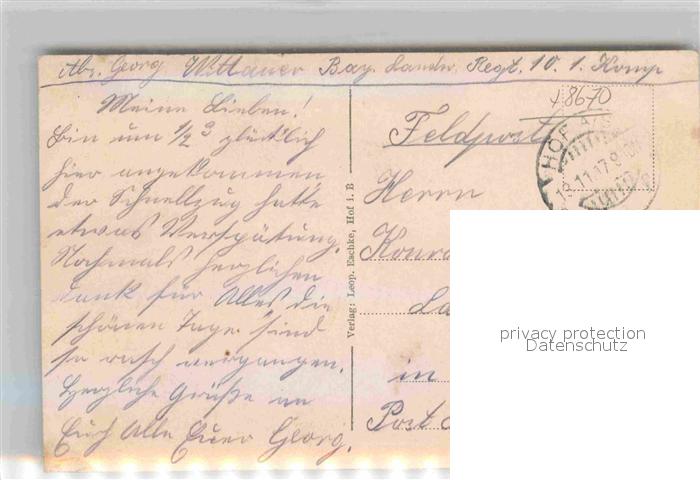 Abs. Georg Wittauer Bay. Landw. Regt. 10. 1. Komp
+8670
Meine Lieben!
Bin um 1/2 3 glücklich
hier angekommen
der Schnellzug hatte
etwas Verspätung.
Nochmals herzlichen
Dank für Alles die
schönen Tage sind
so rasch vergangen.
Herzliche Grüße an
Euch Alle Euer Georg.
Verlag: Leop. Eschke, Hof i. B
Feldpost
HOF
Herrn
Konra
La
in
Post
privacy protection
Datenschutz